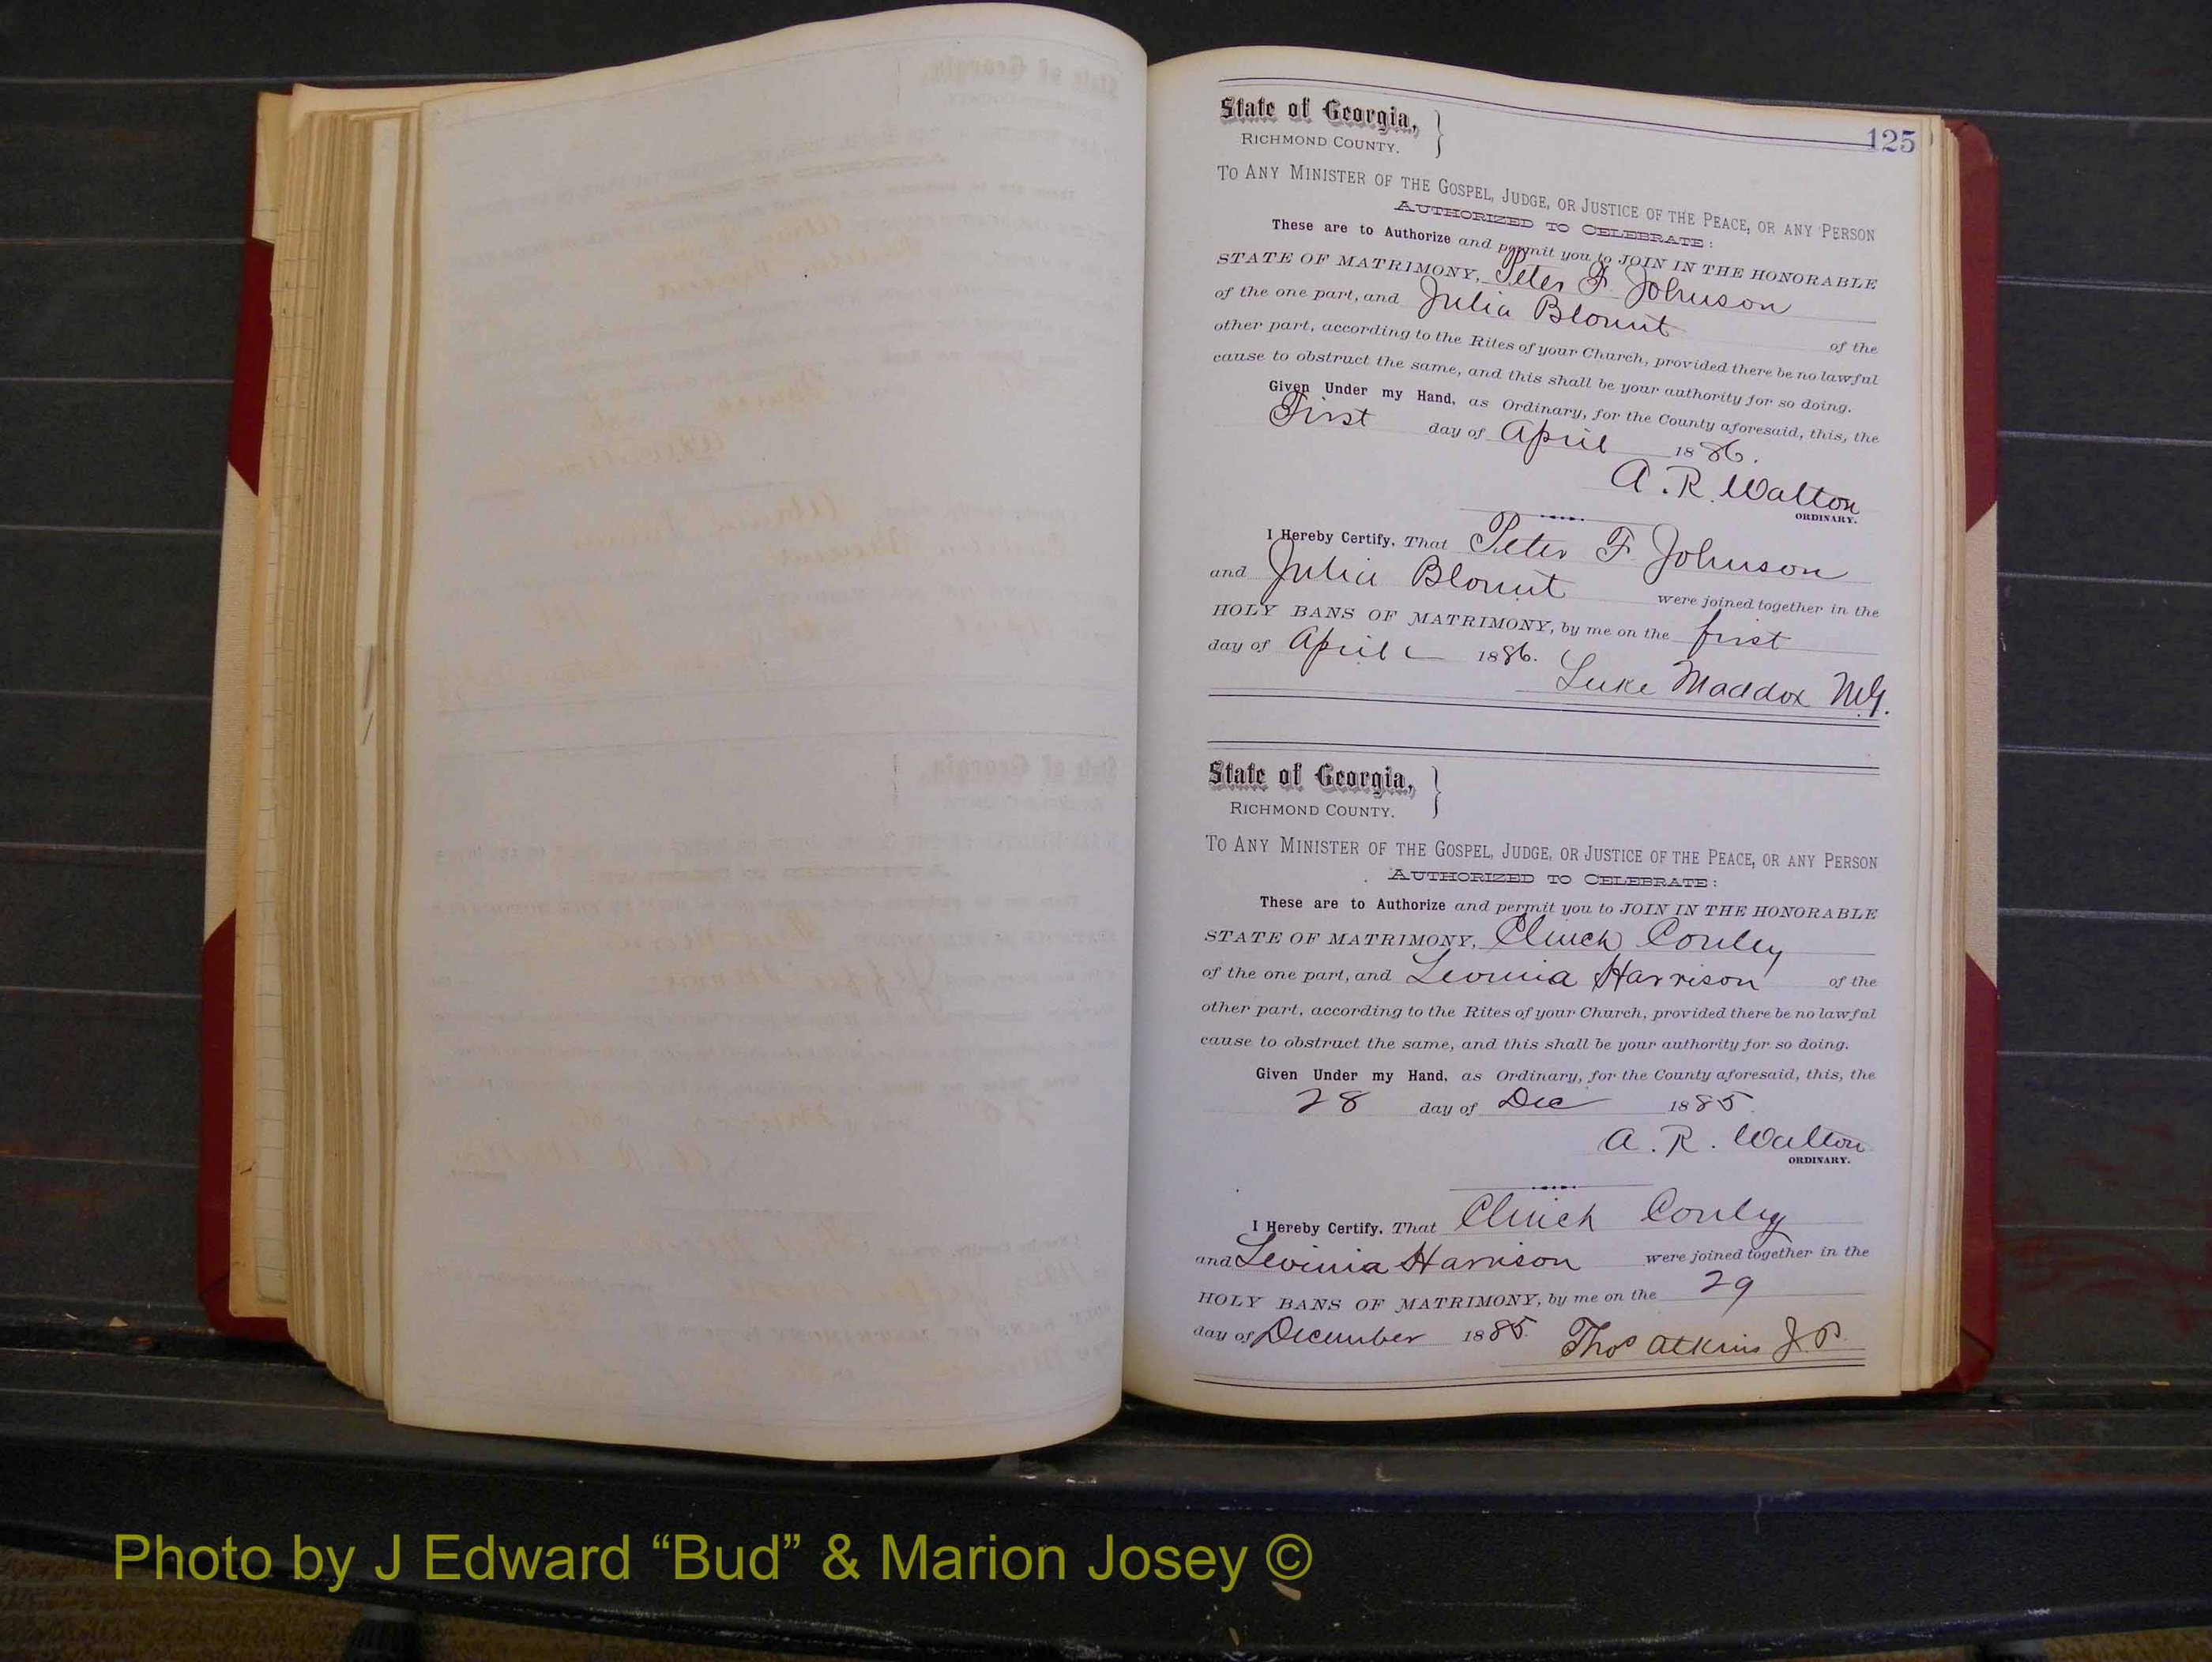 125
State of Georgia,
RICHMOND COUNTY.
TO ANY MINISTER OF THE GOSPEL, JUDGE, OR JUSTICE OF THE PEACE, OR ANY PERSON
AUTHORIZED TO CELEBRATE:
These are to Authorize and permit you to JOIN IN THE HONORABLE
STATE OF MATRIMONY, Peter F. Johnson
of the one part, and Julia Blount of the
other part, according to the Rites of your Church, provided there be no lawful
cause to obstruct the same, and this shall be your authority for so doing.
Given Under my Hand, as Ordinary, for the County aforesaid, this, the
First day of April 1886.
A. R. Walton
ORDINARY.
I Hereby Certify, That Peter F. Johnson
and Julia Blount were joined together in the
HOLY BANS OF MATRIMONY, by me on the first
day of April 1886.
Luke Maddox M.G.
State of Georgia,
RICHMOND COUNTY.
TO ANY MINISTER OF THE GOSPEL, JUDGE, OR JUSTICE OF THE PEACE, OR ANY PERSON
AUTHORIZED TO CELEBRATE:
These are to Authorize and permit you to JOIN IN THE HONORABLE
STATE OF MATRIMONY, Clinch Conley
of the one part, and Levinia Harrison of the
other part, according to the Rites of your Church, provided there be no lawful
cause to obstruct the same, and this shall be your authority for so doing.
Given Under my Hand, as Ordinary, for the County aforesaid, this, the
28 day of Dec 1885
A. R. Walton
ORDINARY.
I Hereby Certify, That Clinch Conley
and Levinia Harrison were joined together in the
HOLY BANS OF MATRIMONY, by me on the 29
day of December 1885. Thos Atkins J.P.
Photo by J Edward “Bud” & Marion Josey ©